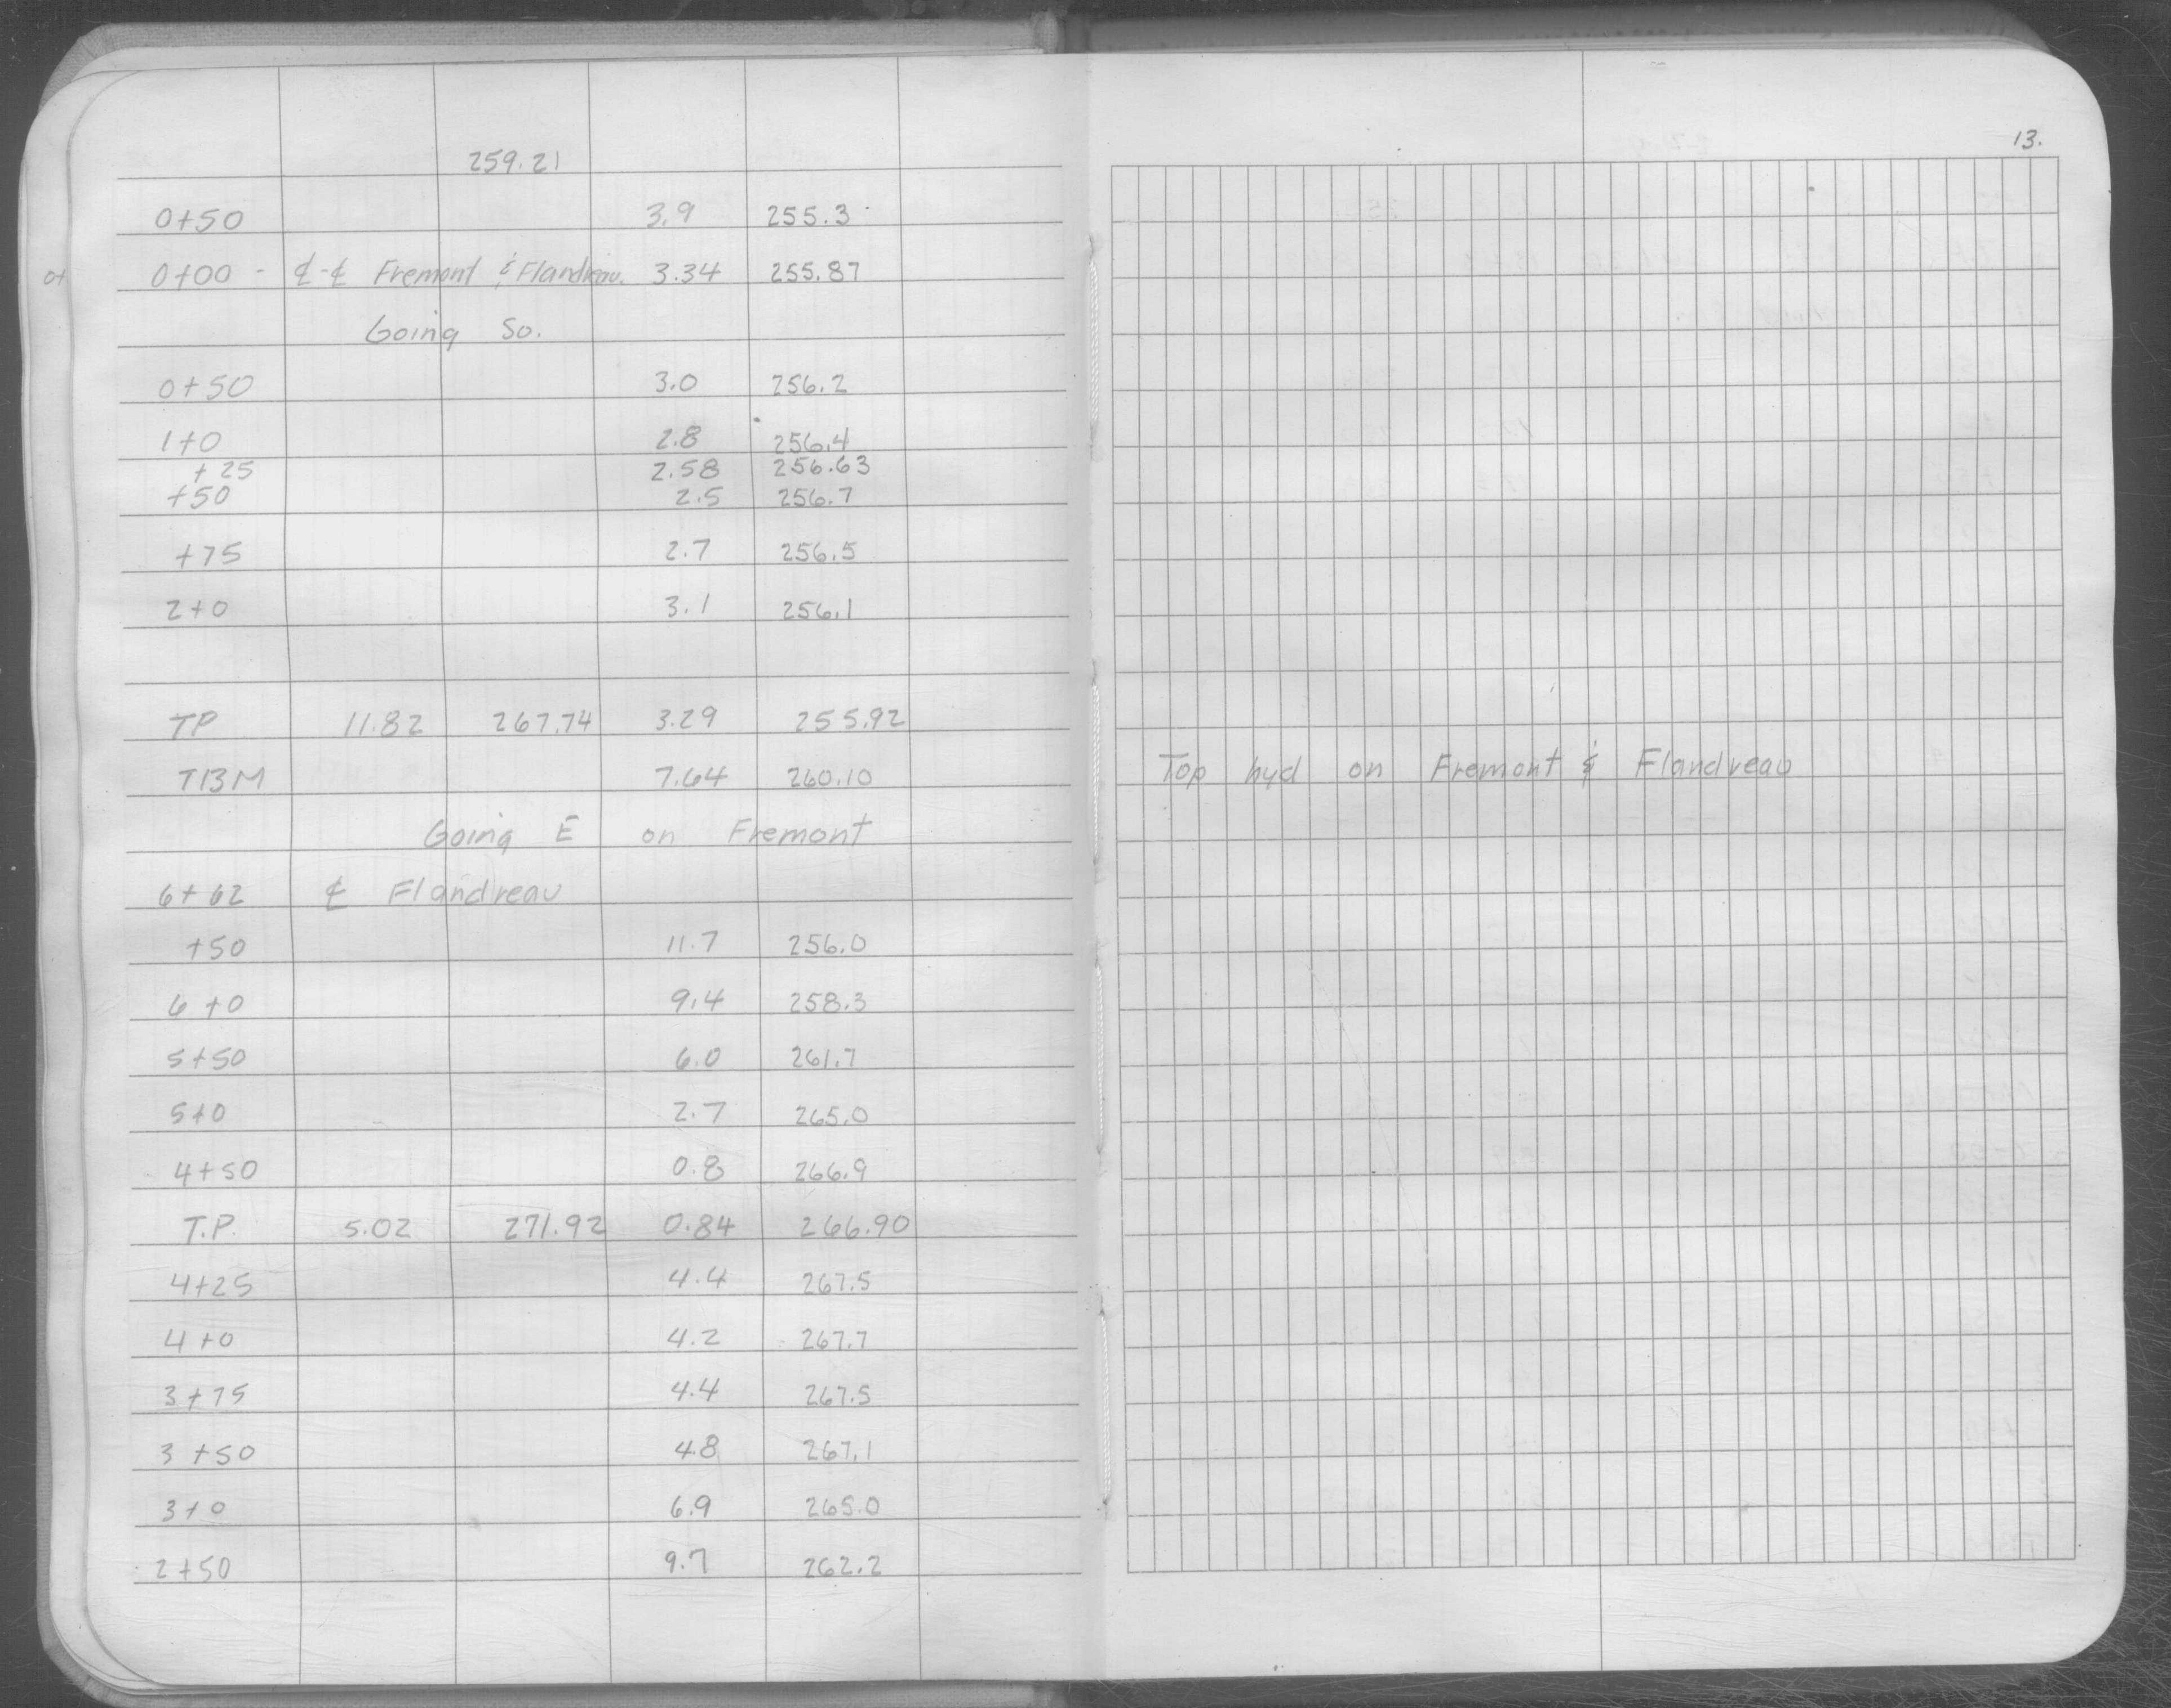 13.
259.21
0+50 3.9 255.3
0+ 0+00 - ℄-℄ Fremont & Flandreau. 3.34 255.87
Going So.
0+50 3.0 256.2
1+0 2.8 256.4
+25 2.58 256.63
+50 2.5 256.7
+75 2.7 256.5
2+0 3.1 256.1
TP 11.82 267.74 3.29 255.92
TBM 7.64 260.10 Top hyd on Fremont & Flandreau
Going E on Fremont
6+62 ℄ Flandreau
+50 11.7 256.0
6+0 9.4 258.3
5+50 6.0 261.7
5+0 2.7 265.0
4+50 0.8 266.9
T.P. 5.02 271.92 0.84 266.90
4+25 4.4 267.5
4+0 4.2 267.7
3+75 4.4 267.5
3+50 4.8 267.1
3+0 6.9 265.0
2+50 9.7 262.2